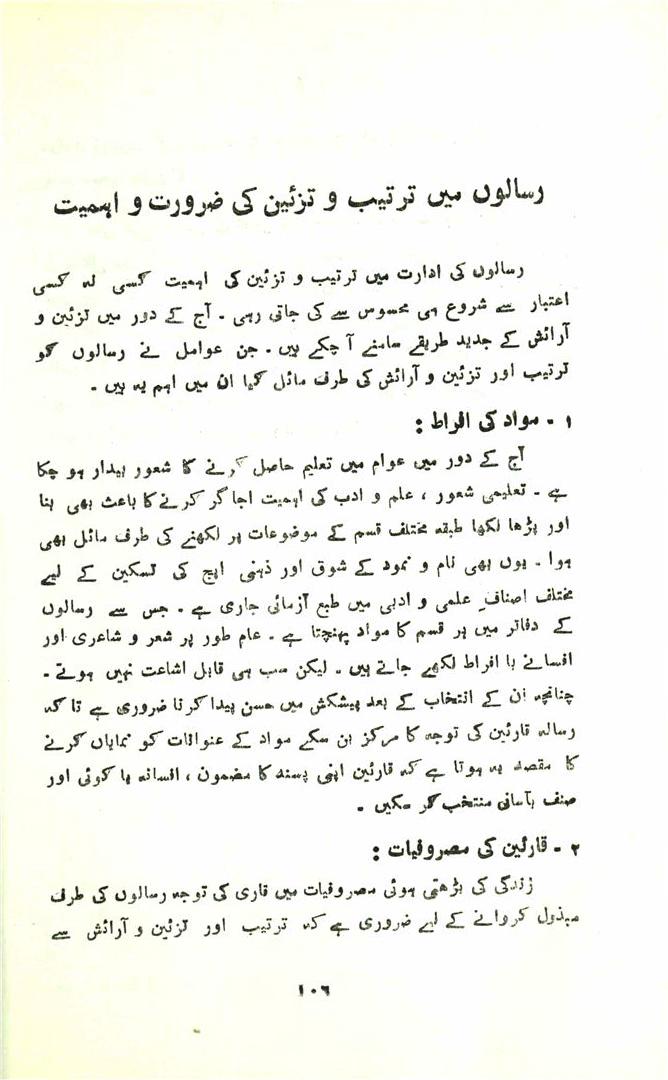 رسالوں میں ترتیب و تزئین کی ضرورت و اہمیت
رسالوں کی ادارت میں ترتیب و تزئین کی اہمیت کسی نہ کسی
اعتبار سے شروع ہی محسوس سے کی جاتی رہی ۔ آج کے دور میں تزئین و
آرائش کے جدید طریقے سامنے آ چکے ہیں ۔ جن عوامل نے رسالوں کو
ترتیب اور تزئین و آرائش کی طرف مائل کیا ان میں اہم یہ ہیں ۔
۱ ۔ مواد کی افراط :
آج کے دور میں عوام میں تعلیم حاصل کرنے کا شعور بیدار ہو چکا
ہے ۔ تعلیمی شعور ، علم و ادب کی اہمیت اجاگر کرنے کا باعث بھی بنا
اور پڑھا لکھا طبقہ مختلف قسم کے موضوعات پر لکھنے کی طرف مائل بھی
ہوا ۔ یوں بھی نام و نمود کے شوق اور ذہنی اپج کی تسکین کے لیے
مختلف اصنافِ علمی و ادبی میں طبع آزمائی جاری ہے ۔ جس سے رسالوں
کے دفاتر میں ہر قسم کا مواد پہنچتا ہے ۔ عام طور پر شعر و شاعری اور
افسانے با افراط لکھے جاتے ہیں ۔ لیکن سب ہی قابل اشاعت نہیں ہوتے ۔
چنانچہ ان کے انتخاب کے بعد پیشکش میں حسن پیدا کرنا ضروری ہے تا کہ
رسالہ قارئین کی توجہ کا مرکز بن سکے مواد کے عنوانات کو نمایاں کرنے
کا مقصد یہ ہوتا ہے کہ قارئین اپنی پسند کا مضمون ، افسانہ یا کوئی اور
صنف بآسانی منتخب کر سکیں ۔
۲ ۔ قارئین کی مصروفیات :
زندگی کی بڑھتی ہوئی مصروفیات میں قاری کی توجہ رسالوں کی طرف
مبذول کروانے کے لیے ضروری ہے کہ ترتیب اور تزئین و آرائش سے
۱۰۶